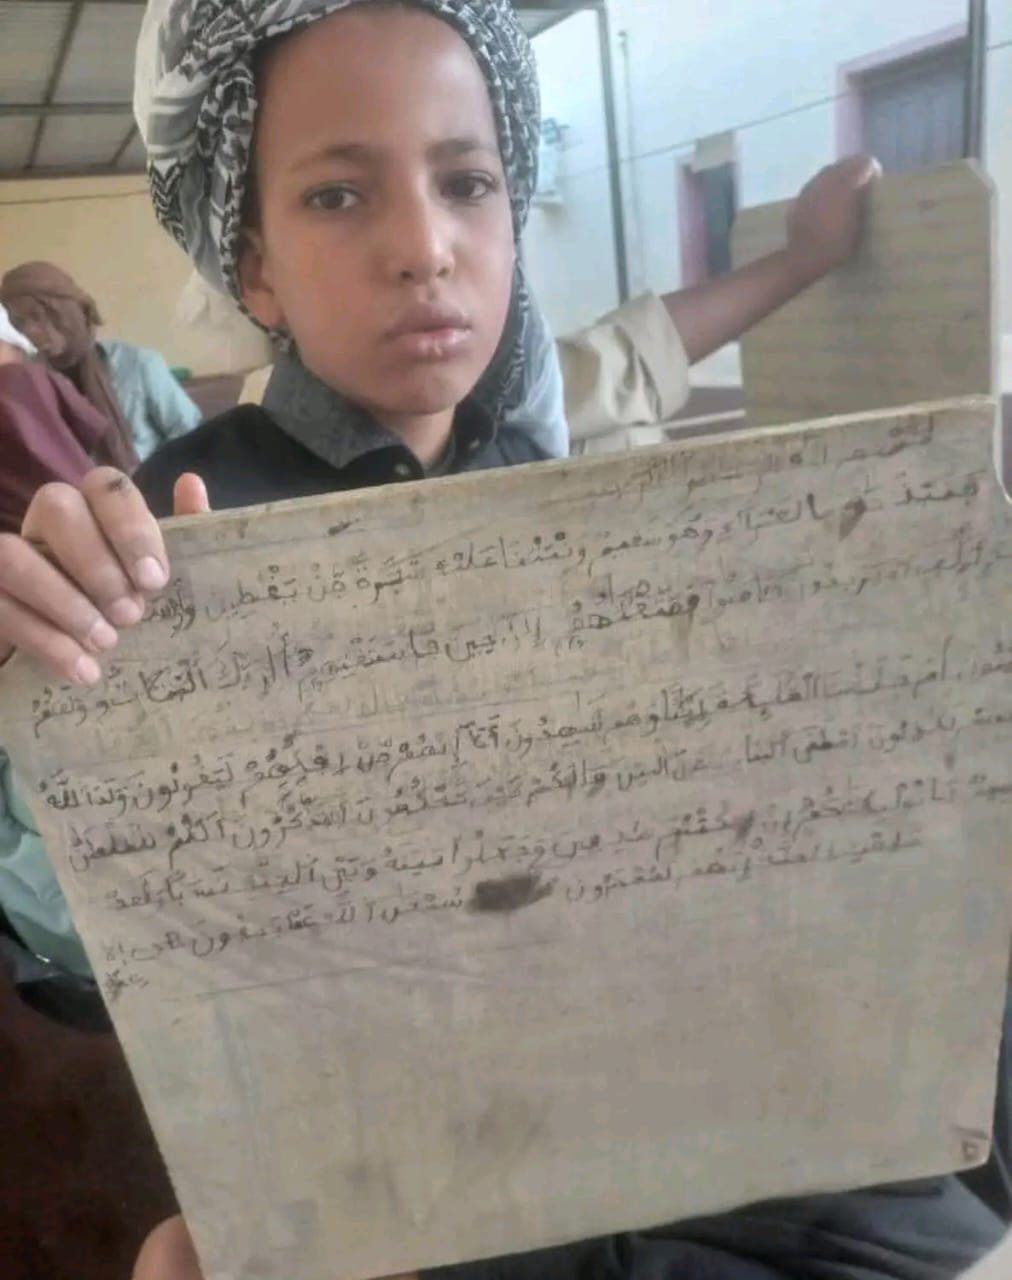 بسم الله الرحمن الرحيم
فنبذنه بالعراء وهو سقيم وأنبتنا عليه شجرة من يقطين
أو يزيدون فامنوا فمتعنهم إلى حين فاستفتهم ألربك البنات ولهم
أم خلقنا الملئكة إنثا وهم شهدون ألا إنهم من إفكهم ليقولون ولد الله
لكذبون اصطفى البنات على البنين مالكم كيف تحكمون أفلا تذكرون أم لكم سلطن
فاتوا بكتبكم إن كنتم صدقين وجعلوا بينه وبين الجنة نسبا ولقد
علمت الجنة إنهم لمحضرون سبحن الله عما يصفون إلا